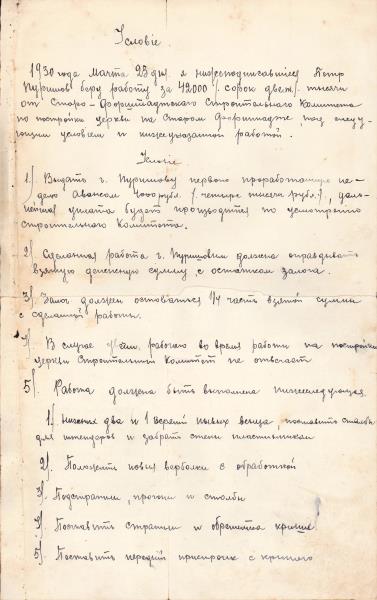 Условiе
1930 года Марта 25 дня. я нижеподписавшiеся Петр
Пуришов беру работу за 42000/. сорок две м./ тысячи
от Старо-Форштадтского Строительного Комитета
по постройки церкви на Старом Форштадте, под следу-
ющим условием и нижеуказанной работой.
Условiе
1/. Выдать г. Пуришову первого проработанную не-
делю Авансом 4000 рубл. (четыре тысячи рубл.)., даль-
нейшая уплата будет производится по усмотрению
строительного Комитета.
2/. Сделанная работа г. Пуришовым должена оправдывать
взятую денежную сумму с остатком залога.
3/. Залог должен оставаться 1/4 часть взятой суммы
с сделанной работы.
4/. В случае рабочего во время работы на постройки
церкви Строительный Комитет не отвечает
5/. Работа должена быть выполнена нижеследующая.
1/. нижних два и 1 верхнiй новых венца, поставить столбы
для штендоров и забрать стены пластинками
2/. Положить новыя верболки с обработкой
3/. Подстрапили, прогоны и столбы
4/. Поставить страпили и обрешотка крыши
5/. Поставить переднiй присtroек с крышею